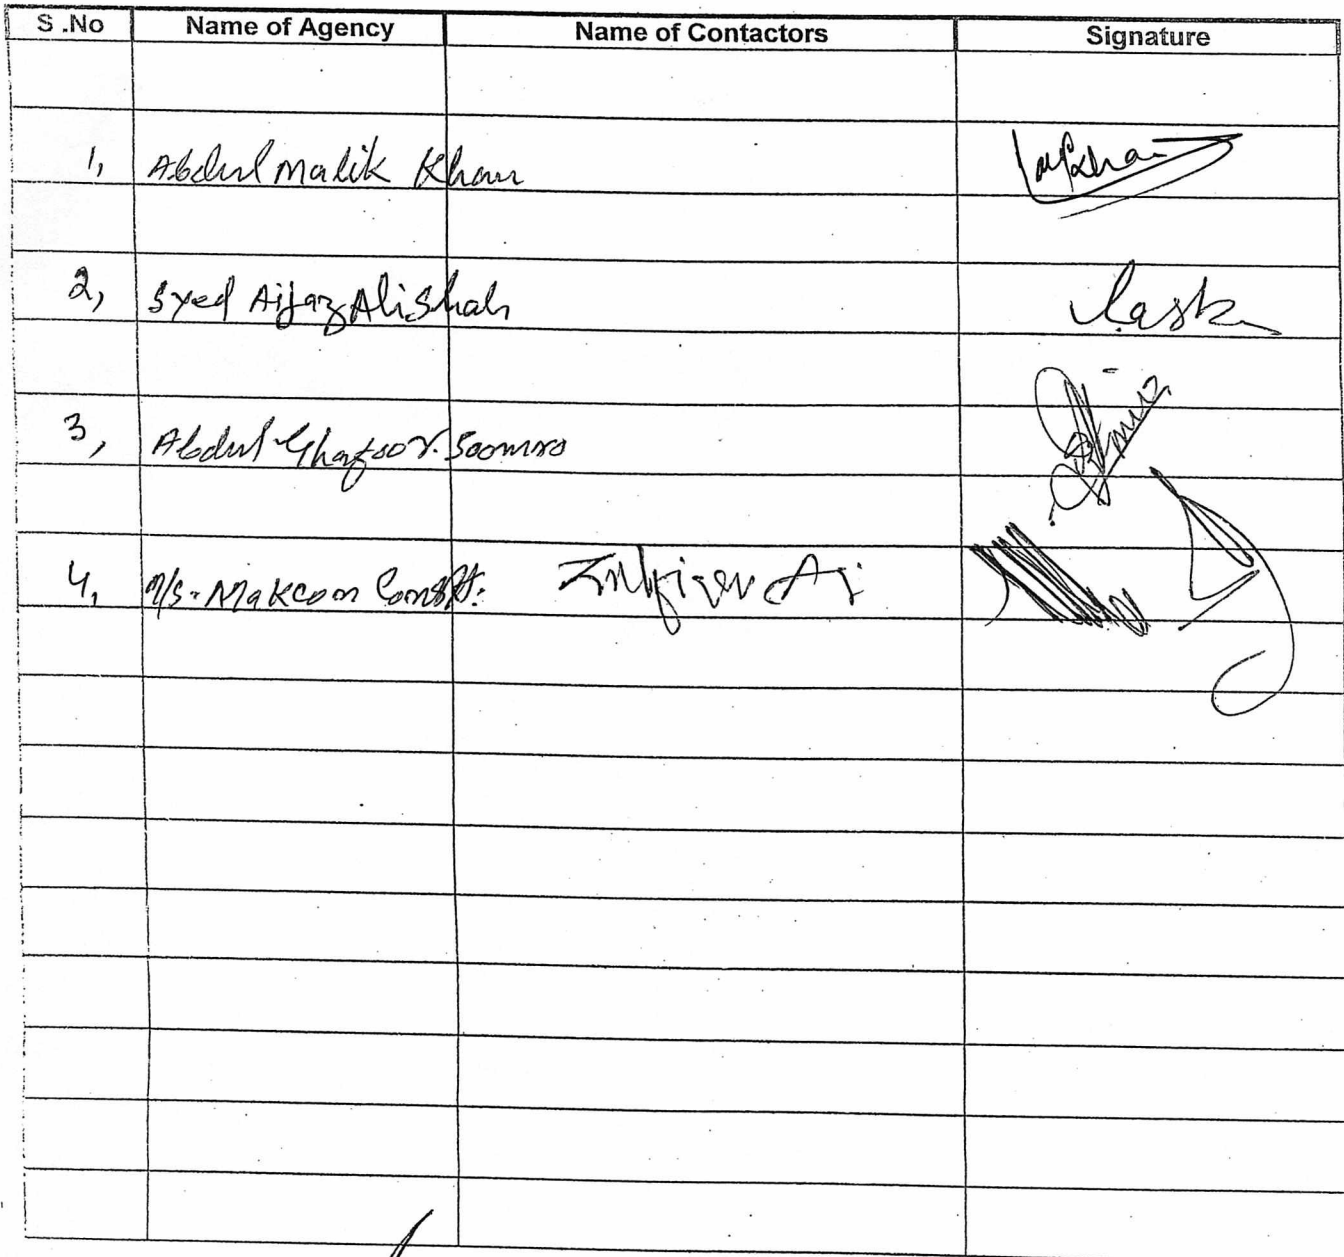 S .No Name of Agency Name of Contactors Signature
1, Abdul Malik Khan
2, Syed Aijaz Ali Shah
3, Abdul Ghafoor. Soomro
4, M/S. Makcon Constt: